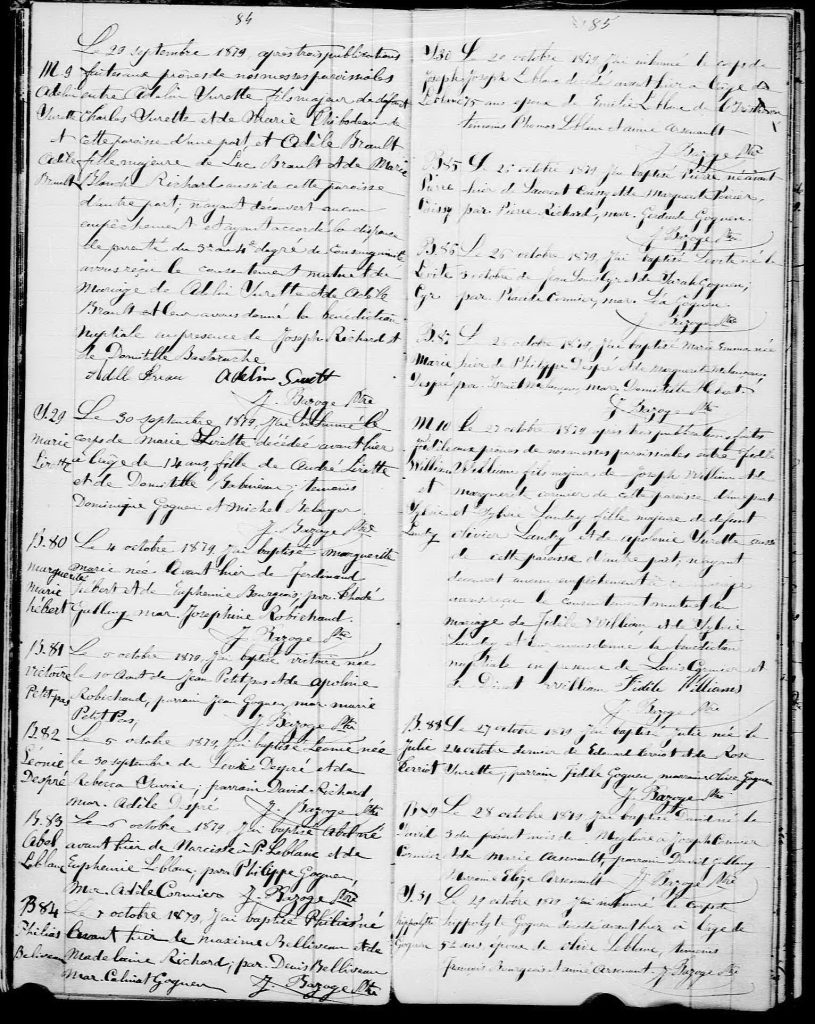 84
Le 29 septembre 1879 après trois publications
M 9 faites aux prônes de nos messes paroissiales
Adelin entre Adelin Surette fils majeur de défunt
Surette Charles Surette et de Marie Thibodeau de
et cette paroisse d'une part, et Adèle Brault
Adèle fille majeure de Luc Brault et de Marie
Brault Blanche Richard aussi de cette paroisse
d'autre part; n'ayant découvert aucun
empêchement et ayant accordé la dispense
de parenté du 3e au 4e degré de consanguinité
avons reçu le consentement mutuel de
mariage de Adelin Surette et de Adèle
Brault et leur avons donné la bénédiction
nuptiale en présence de Joseph Richard et
de Domitille Bastarache
Adelin Surett
J. Bazoge Ptre
S. 29 Le 30 septembre 1879, J'ai inhumé le
Marie corps de Marie Lirette décédée avant hier
Lirette à l'âge de 14 ans, fille de André Lirette
et de Domitille Babineau; témoins
Dominique Goguen et Michel Belanger
J. Bazoge Ptre
B. 80 Le 4 octobre 1879, J'ai baptisé marguerite
marguerite marie née avant hier de Ferdinand
Marie hébert et de Euphemie Bourgeois, par.
hébert mar. Josephine Robichaud.
J. Bazoge Ptre
B. 81 Le 5 octobre 1879, J'ai baptisé victoire née
Victoire le 10 Aout de Jean Petitpas et de apoline
Petitpas Robichaud, parrain Jean Goguen mar marie
Petit Pas,
J. Bazoge Ptre
B. 82 Le 5 octobre 1879, J'ai baptisé Léonie née
Léonie le 30 septembre de Despré et de
Despré Rebecca parrain David Richard
mar. Adèle Despré J. Bazoge Ptre
B. 83 Le 6 octobre 1879, J'ai baptisé Abel né
Abel avant hier de Narcisse à P. Leblanc et de
Leblanc Euphemie Leblanc, par Philippe Goguen,
Mr. Adèle Cormier J. Bazoge Ptre
B 84 Le 7 octobre 1879, J'ai baptisé Philias né
Philias avant hier de maxime Belliveau et de
Belliveau Madelaine Richard; par. Denis Belliveau
mar. Goguen J. Bazoge Ptre
85
S. 30 Le 20 octobre 1879 J'ai inhumé le corps de
Joseph Joseph Leblanc décédé avant hier à l'âge de
Leblanc 75 ans époux de Emilie Leblanc de
témoins Thomas Leblanc et aimé Arsenault
J. Bazoge Ptre
B. 85 Le 25 octobre 1879, J'ai baptisé Pierre né avant
Pierre hier de Laurent Cuissy et de Marguerite Poirier,
Cuissy par. Pierre Richard, mar. Goguen.
J. Bazoge Ptre
B. 86 Le 26 octobre 1879, J'ai baptisé Levite né le
Lévite 3 octobre de Jean Louis Cyr et de Sarah Goguen;
Cyr par. Placide Cormier, mar. Goguen
J. Bazoge Ptre
B. 87 Le 26 octobre 1879, J'ai baptisé Marie Emma née
Marie hier de Philippe Despré et de marguerite
Despré par. mar. Domitille Hebert
J. Bazoge Ptre
M 10 Le 27 octobre 1879 après trois publications faites
fidèle aux prônes de nos messes paroissiales entre Fidèle
William William fils majeur de Joseph William et de
et marguerite cormier de cette paroisse d'une part
Sylvie et Sylvie Landry fille majeure de défunt
Landry olivier Landry et de apolonie Surette aussi
de cette paroisse d'autre part; n'ayant
découvert aucun empêchement à ce mariage
avons reçu le consentement mutuel du
mariage de Fidèle William et de Sylvie
Landry et leur avons donné la bénédiction
nuptiale en présence de Louis Cormier et
de William Fidèle Williams
J. Bazoge Ptre
B. 88 Le 27 octobre 1879 J'ai baptisé Julie née le
Julie 24 octobre dernier de Eduard et de Rose
Surette, parrain Fidèle Goguen, marraine Olive Goguen
J. Bazoge Ptre
B 89 Le 28 octobre 1879 J'ai baptisé David né le
David 3 du présent mois de à Joseph Cormier
Cormier et de Marie Arsenault, parrain David
Marraine Elize Arsenault J. Bazoge Ptre
S. 31 Le 29 octobre 1879, J'ai inhumé le corps de
hippolyte hippolyte Goguen décédé avant hier à l'âge de
Goguen 52 ans époux de olive Leblanc, témoins
françois Bourgeois et aimé Arsenault J. Bazoge Ptre